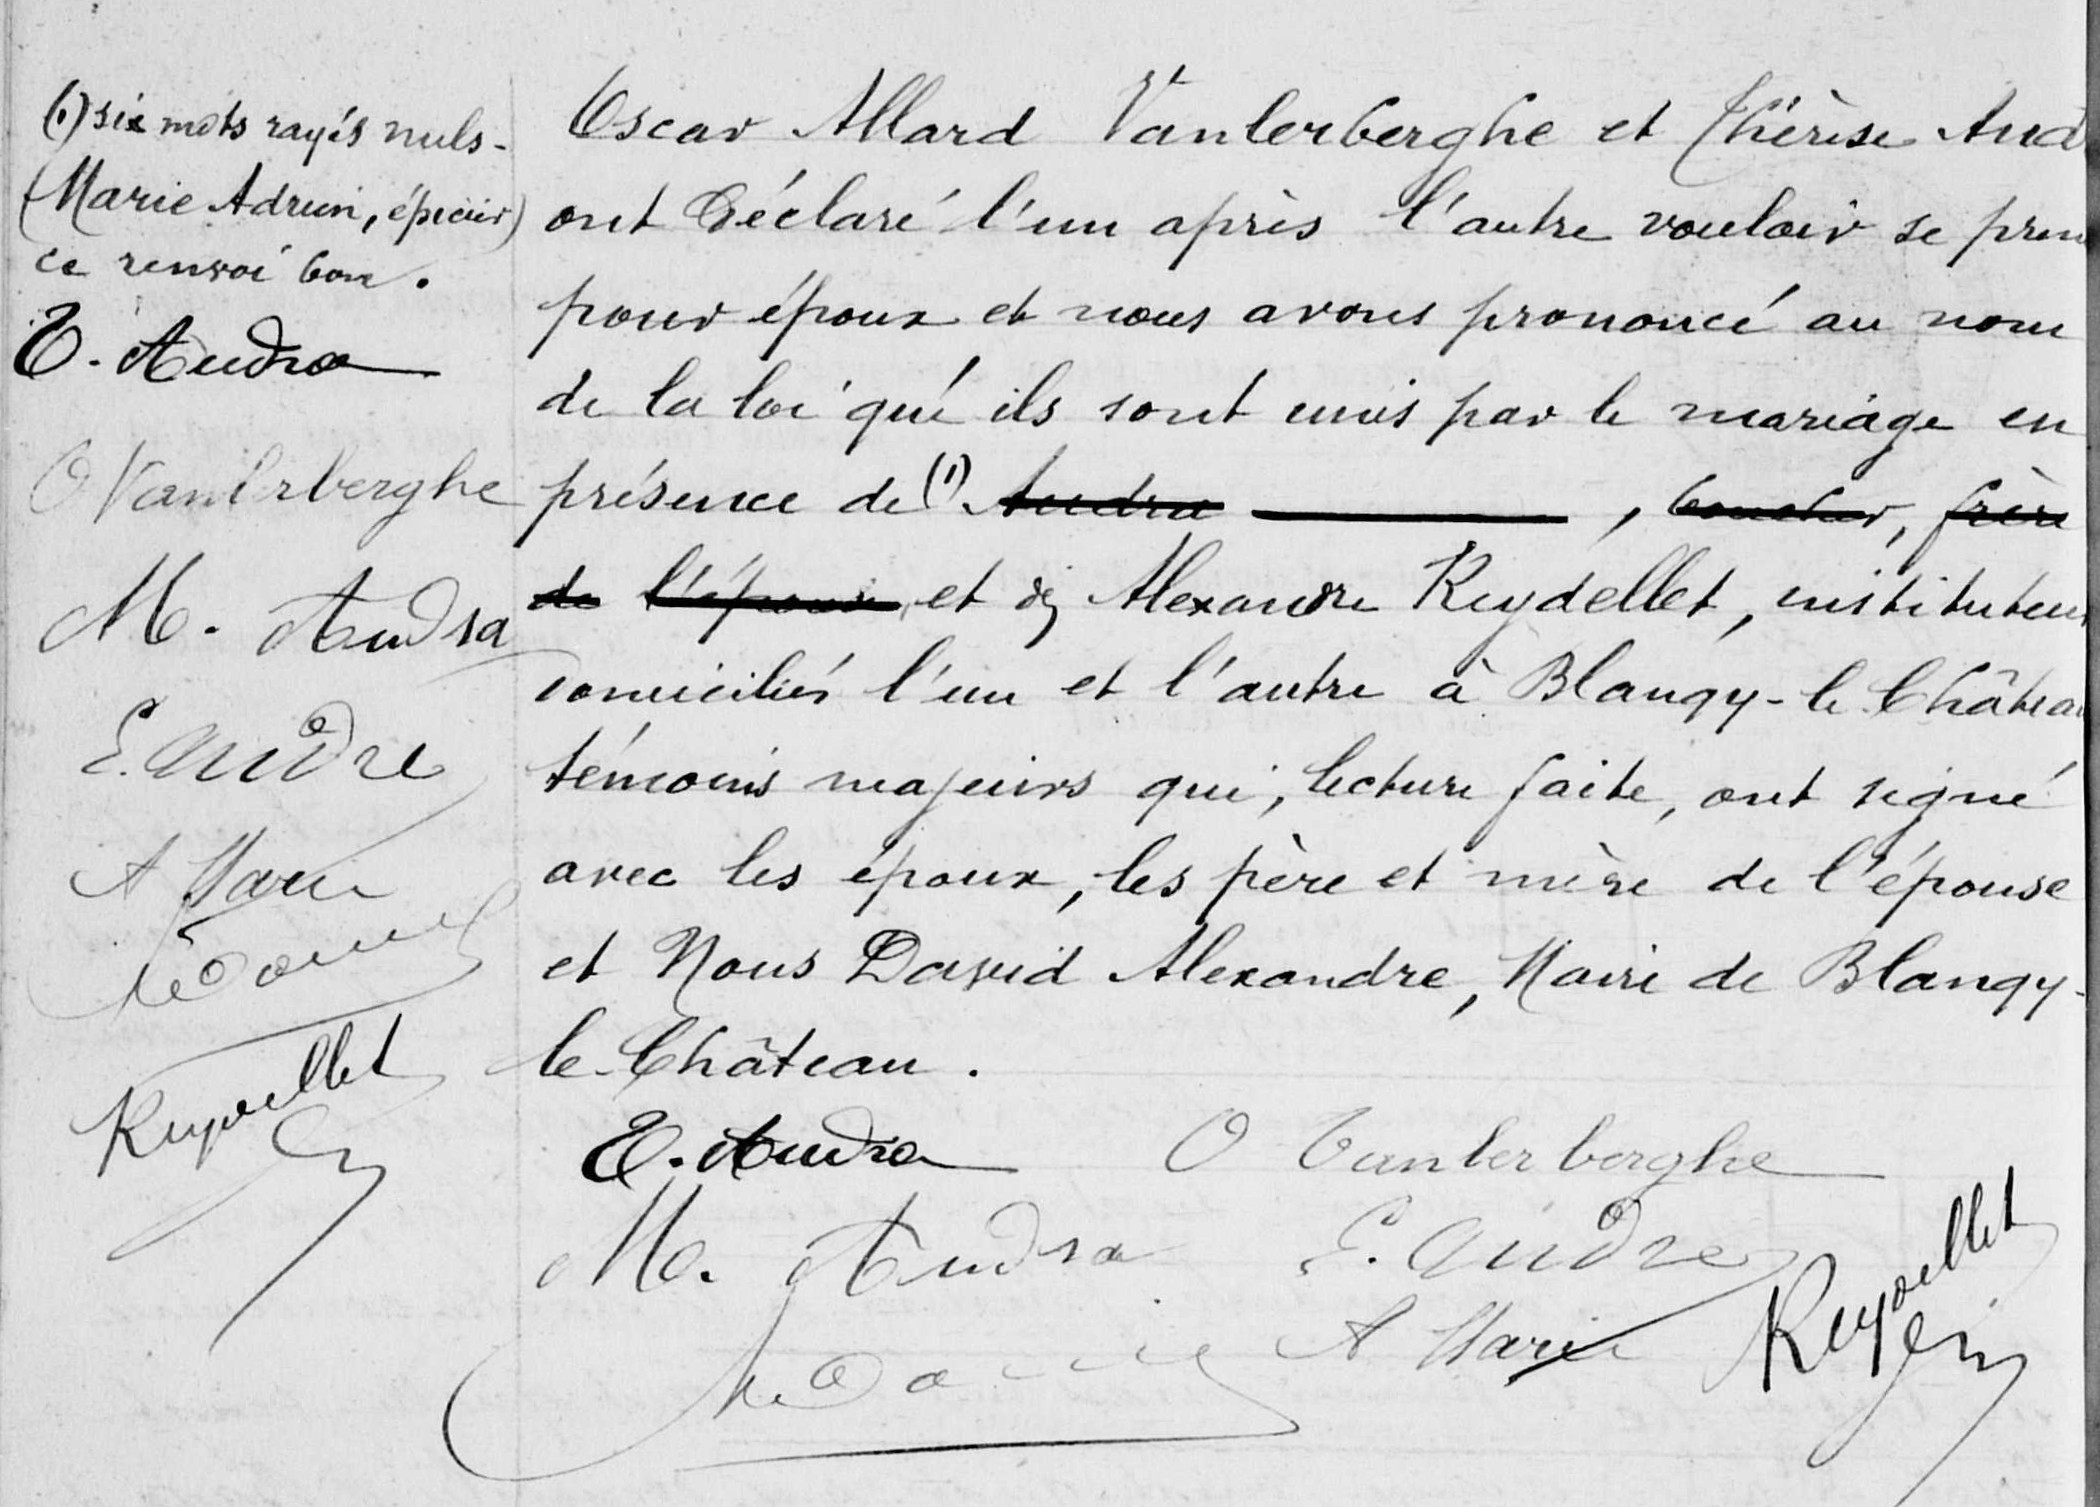 (1) six mots rayés nuls-
(Marie Adrien, épicier)
ce renvoi bon.
E. Audra
O Vanlerberghe
M. Audra
E. Audre
A Marie
Reydellet
Oscar Allard Vanlerberghe et Thérèse Aud
ont déclaré l'un après l'autre vouloir se pren
pour époux et nous avons prononcé au nom
de la loi que ils sont unis par le mariage en
présence de (1) Audra , boucher, frère
de l'épouse, et de Alexandre Reydellet, instituteur
domiciliés l'un et l'autre à Blangy-le Château
témoins majeurs qui, lecture faite, ont signé
avec les époux, les père et mère de l'épouse
et Nous David Alexandre, Maire de Blangy-
le-Château.
E. Audra O Vanlerberghe
M. Audra E. Audre
A Marie Reydellet